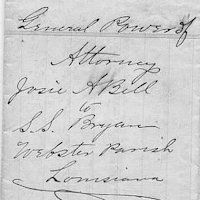 General Power of
Attorney
Josie A Bell
to
S. S. Bryan
Webster Parish
Louisiana